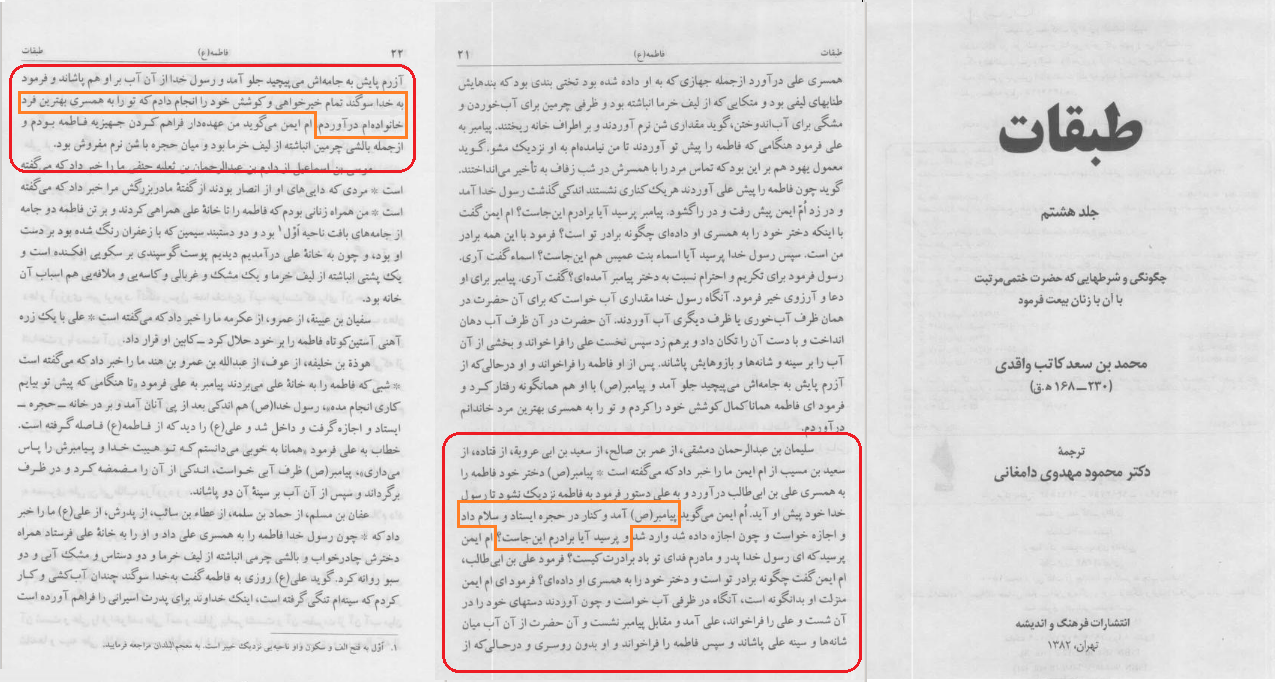 طبقات
جلد هشتم
چگونگی و شرطهایی که حضرت ختمی‌مرتبت
با آن با زنان بیعت فرمود
محمد بن سعد کاتب واقدی
(۲۳۰ــ۱۶۸ ه‍.ق)
ترجمهٔ
دکتر محمود مهدوی دامغانی
انتشارات فرهنگ و اندیشه
تهران، ۱۳۸۲
طبقات
فاطمه(ع)
۲۱
همسری علی درآورد ازجمله جهازی که به او داده شده بود تختی بندی بود که بندهایش
طنابهای لیفی بود و متکایی که از لیف خرما انباشته بود و ظرفی چرمین برای آب‌خوردن و
مشگی برای آب‌اندوختن، گوید مقداری شن نرم آوردند و بر اطراف خانه ریختند. پیامبر به
علی فرمود هنگامی که فاطمه را پیش تو آوردند تا من نیامده‌ام به او نزدیک مشو. گوید
معمول یهود هم بر این بود که تماس مرد را با همسرش در شب زفاف به تأخیر می‌انداختند.
گوید چون فاطمه را پیش علی آوردند هریک کناری نشستند اندکی گذشت رسول خدا آمد
و در زد اُمّ ایمن پیش رفت و در را گشود. پیامبر پرسید آیا برادرم این‌جاست؟ ام ایمن گفت
با اینکه دختر خود را به همسری او داده‌ای چگونه برادر تو است؟ فرمود با این همه برادر
من است. سپس رسول خدا پرسید آیا اسماء بنت عمیس هم این‌جاست؟ اسماء گفت آری.
رسول فرمود برای تکریم و احترام نسبت به دختر پیامبر آمده‌ای؟ گفت آری. پیامبر برای او
دعا و آرزوی خبر فرمود. آنگاه رسول خدا مقداری آب خواست که برای آن حضرت در
همان ظرف آب‌خوری یا ظرف دیگری آب آوردند. آن حضرت در آن ظرف آب دهان
انداخت و با دست آن را تکان داد و برهم زد سپس نخست علی را فراخواند و بخشی از آن
آب را بر سینه و شانه‌ها و بازوهایش پاشاند. پس از او فاطمه را فراخواند و او درحالی‌که از
آزرم پایش به جامه‌اش می‌پیچید جلو آمد و پیامبر(ص) با او هم همانگونه رفتار کرد و
فرمود ای فاطمه همانا کمال کوشش خود را کردم و تو را به همسری بهترین مرد خاندانم
درآوردم.
سلیمان بن عبدالرحمان دمشقی، از عمر بن صالح، از سعید بن ابی عروبة، از قتاده، از
سعید بن مسیب از ام ایمن ما را خبر داد که می‌گفته است * پیامبر(ص) دختر خود فاطمه را
به همسری علی بن ابی‌طالب درآورد و به علی دستور فرمود به فاطمه نزدیک نشود تا رسول
خدا خود پیش او آید. اُم ایمن می‌گوید پیامبر(ص) آمد و کنار در حجره ایستاد و سلام داد
و اجازه خواست و چون اجازه داده شد وارد شد و پرسید آیا برادرم این‌جاست؟ ام ایمن
پرسید که ای رسول خدا پدر و مادرم فدای تو باد برادرت کیست؟ فرمود علی بن ابی‌طالب،
ام ایمن گفت چگونه برادر تو است و دختر خود را به همسری او داده‌ای؟ فرمود ای ام ایمن
منزلت او بدانگونه است، آنگاه در ظرفی آب خواست و چون آوردند دستهای خود را در
آن شست و علی را فراخواند، علی آمد و مقابل پیامبر نشست و آن حضرت از آن آب میان
شانه‌ها و سینه علی پاشاند و سپس فاطمه را فراخواند و او بدون روسری و درحالی‌که از
۲۲
فاطمه(ع)
طبقات
آزرم پایش به جامه‌اش می‌پیچید جلو آمد و رسول خدا از آن آب بر او هم پاشاند و فرمود
به خدا سوگند تمام خیرخواهی و کوشش خود را انجام دادم که تو را به همسری بهترین فرد
خانواده‌ام درآوردم. ام ایمن می‌گوید من عهده‌دار فراهم کردن جهیزیه فاطمه بودم و
ازجمله بالشی چرمین انباشته از لیف خرما بود و میان حجره با شن نرم مفروش بود.
موسی بن اسماعیل از دارم بن عبدالرحمان بن ثعلبه حنفی ما را خبر داد که می‌گفته
است * مردی که دایی‌های او از انصار بودند از گفتهٔ مادربزرگش مرا خبر داد که می‌گفته
است * من همراه زنانی بودم که فاطمه را تا خانهٔ علی همراهی کردند و بر تن فاطمه دو جامه
از جامه‌های بافت ناحیه اَوْل۱ بود و دو دستبند سیمین که با زعفران رنگ شده بود بر دست
او بود، و چون به خانهٔ علی درآمدیم دیدیم پوست گوسپندی بر سکویی افکنده است و
یک پشتی انباشته از لیف خرما و یک مشک و غربالی و کاسه‌یی و ملافه‌یی هم اسباب آن
خانه بود.
سفیان بن عیینة، از عمرو، از عکرمه ما را خبر داد که می‌گفته است * علی با یک زره
آهنی آستین‌کوتاه فاطمه را بر خود حلال کرد ــ کابین او قرار داد.
هوذة بن خلیفه، از عوف، از عبدالله بن عمرو بن هند ما را خبر داد که می‌گفته است
* شبی که فاطمه را به خانهٔ علی می‌بردند پیامبر به علی فرمود «تا هنگامی که پیش تو بیایم
کاری انجام مده»، رسول خدا(ص) هم اندکی بعد از پی آنان آمد و بر در خانه ــ حجره ــ
ایستاد و اجازه گرفت و داخل شد و علی(ع) را دید که از فاطمه(ع) فاصله گرفته است.
خطاب به علی فرمود «همانا به خوبی می‌دانستم که تو هیبت خدا و پیامبرش را پاس
می‌داری»، پیامبر(ص) ظرف آبی خواست، اندکی از آن را مضمضه کرد و در ظرف
برگرداند و سپس از آن آب بر سینهٔ آن دو پاشاند.
عفان بن مسلم، از حماد بن سلمه، از عطاء بن سائب، از پدرش، از علی(ع) ما را خبر
داد که * چون رسول خدا فاطمه را به همسری علی داد و او را به خانهٔ علی فرستاد همراه
دخترش چادرخواب و بالشی چرمی انباشته از لیف خرما و دو دستاس و مشک آبی و دو
سبو روانه کرد. گوید علی(ع) روزی به فاطمه گفت به‌خدا سوگند چندان آب‌کشی و کار
کردم که سینه‌ام تنگی گرفته است، اینک خداوند برای پدرت اسیرانی را فراهم آورده است
۱. اَوْل به فتح الف و سکون واو ناحیه‌یی نزدیک خیبر است. به معجم‌البلدان مراجعه فرمایید.